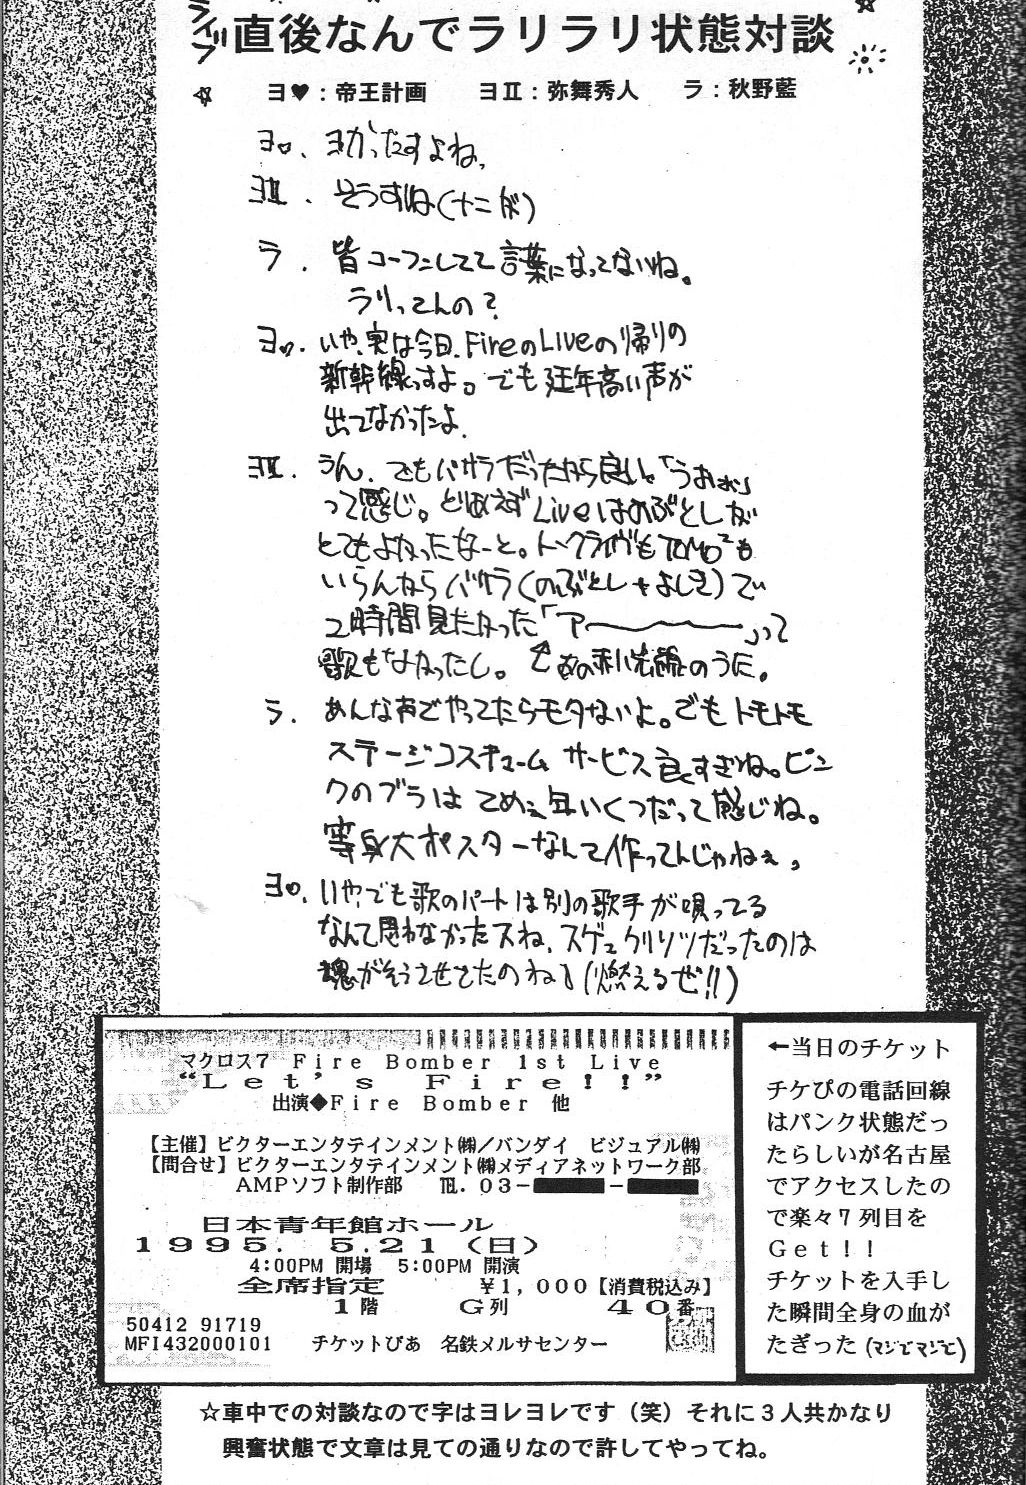 ライブ直後なんでラリラリ状態対談
ヨ♥：帝王計画　ヨⅡ：弥舞秀人　ラ：秋野藍
ヨ♥. ヨかったすよね、
ヨⅡ. そうすね(ナニが)
ラ. 皆コーフンしてて言葉になってないね。
ラリってんの?
ヨ♥. いや、実は今日、FireのLiveの帰りの
新幹線っすよ。でも延年高い声が
出てなかったよ.
ヨⅡ. うん、でもバサラだったから良いや「うおぉぉ」
って感じ。とりあえずLiveはのぶとしが
とてもよかったなーと。トークライヴもTOMO²も
いらんからバサラ(のぶとし+よしき)で
2時間見たかった「アーーーー」って
歌もなかったし。
ラ. あんな声でやってたらモタないよ。でもトモトモ
ステージコスチューム サービス良すぎね。ピン
クのブラは てめェ年いくつだって感じね。
等身大ポスターなんて作ってんじゃねぇ、
ヨ♥. いや、でも歌のパートは別の歌手が唄ってる
なんて思わなかったスね、スゲェクリソツだったのは
魂がそうさせたのね」(燃えるぜ!!)
マクロス7 Fire Bomber 1st Live
“Let's Fire!!”
出演◆Fire Bomber 他
【主催】ビクターエンタテインメント㈱／バンダイ ビジュアル㈱
【問合せ】ビクターエンタテインメント㈱メディアネットワーク部
AMPソフト制作部 ℡. 03－
日本青年館ホール
1995. 5.21 (日)
4:00PM 開場 5:00PM 開演
全席指定 ￥1,000【消費税込み】
1階 G列 40番
50412 91719
MFI432000101 チケットぴあ 名鉄メルサセンター
←当日のチケット
チケぴの電話回線
はパンク状態だっ
たらしいが名古屋
でアクセスしたの
で楽々7列目を
Get!!
チケットを入手し
た瞬間全身の血が
たぎった(マジでマジで)
☆車中での対談なので字はヨレヨレです（笑）それに3人共かなり
興奮状態で文章は見ての通りなので許してやってね。